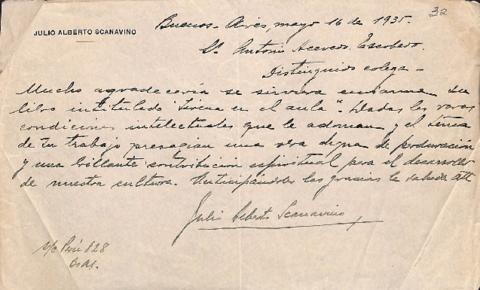 32
JULIO ALBERTO SCANAVINO
Buenos-Aires, mayo 16 de 1935.
Sr. Antonio Acevedo Escobedo.
Distinguido colega -
Mucho agradecería se sirviera enviarme su
libro intitulado "Sirena en el aula". Dadas las raras
condiciones intelectuales que le adornan y el tema
de su trabajo presagian una obra digna de ponderación
y una brillante contribución espiritual para el desarrollo
de nuestra cultura. Anticipándole las gracias le saluda att
Julio Alberto Scanavino
s/c Perú 628
Bs As.